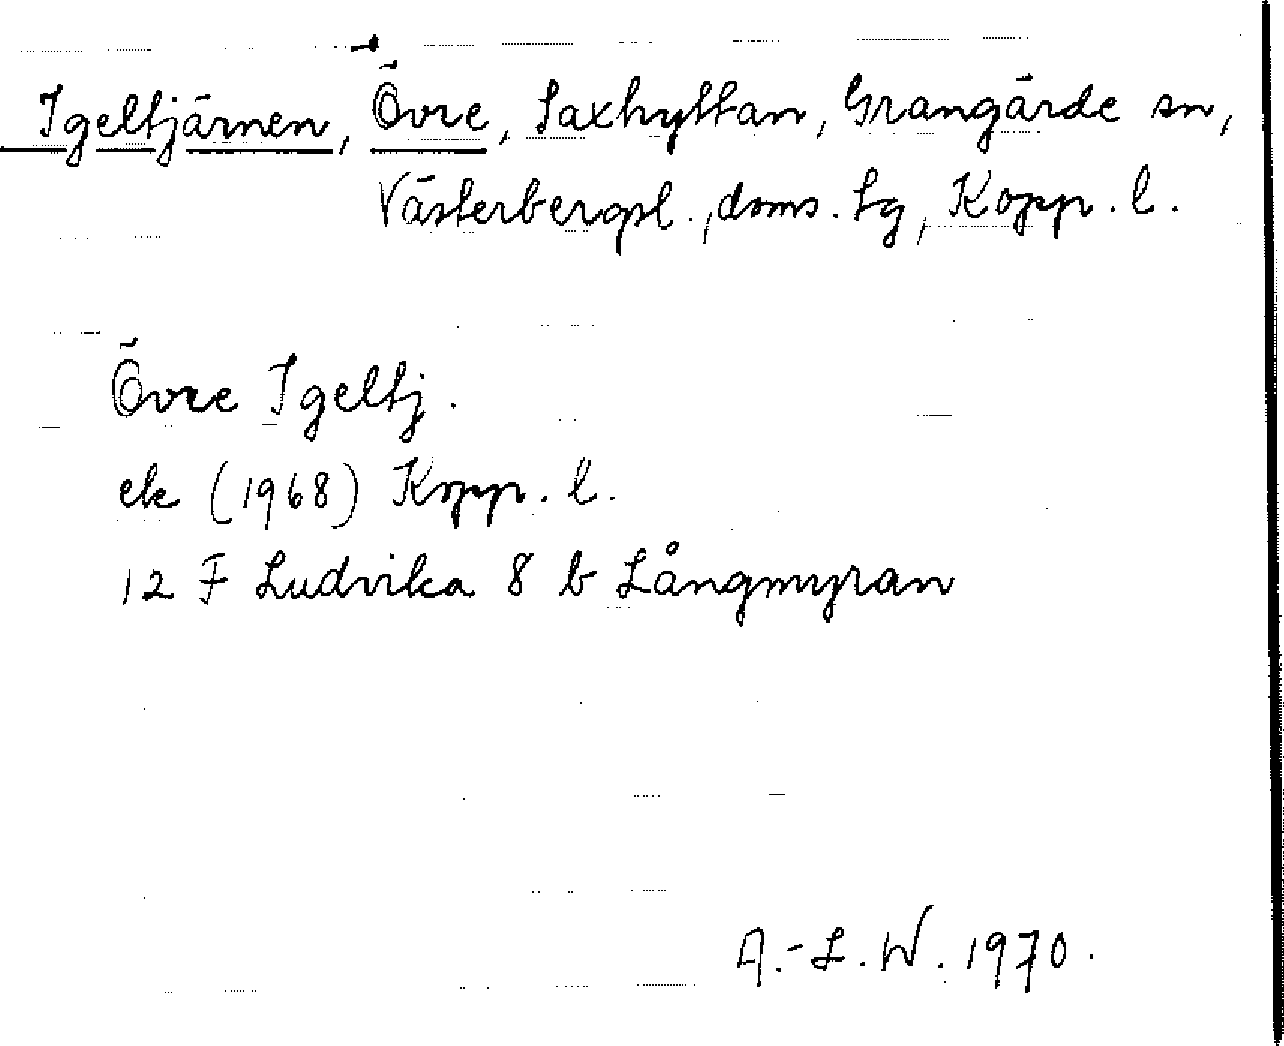 Igeltjärnen, Övre, Saxhyttan, Grangärde sn,
Västerbergsl., doms. tg, Kopp. l.
Övre Igeltj.
ek (1968) Kopp. l.
12 F Ludvika 8 b Långmyran
A.-L. W. 1970.